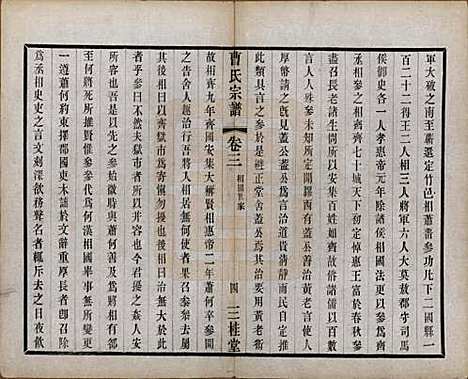 軍大破之南至蘄還定竹邑相蕭留參功凡下二國縣一
百二十二得王二人相三人將軍六人大莫敖郡守司馬
侯御史各一人孝惠帝元年除諸侯相國法更以參爲齊
丞相參之相齊齊七十城天下初定悼惠王富於春秋參
盡召長老諸生問所以安集百姓如齊故俗諸儒以百數
言人人殊參未知所定聞膠西有蓋公善治黃老言使人
厚幣請之旣見蓋公蓋公爲言治道貴清靜而民自定推
此類具言之參於是避正堂舍蓋公焉其治要用黃老術
曹氏宗譜 卷三 相國世家 四 三桂堂
故相齊九年齊國安集大稱賢相惠帝二年蕭何卒參聞
之告舍人趣治行吾將入相居無何使者果召參參去屬
其後相曰以齊獄市爲寄愼勿擾也後相曰治無大於此
者乎參曰不然夫獄市者所以并容也今君擾之姦人安
所容也吾是以先之參始微時與蕭何善及爲將相有郤
至何將死所推賢惟參參代何爲漢相國舉事無所變更
一遵蕭何約束擇郡國吏木詘於文辭重厚長者卽召除
爲丞相史吏之言文刻深欲務聲名者輒斥去之日夜飮